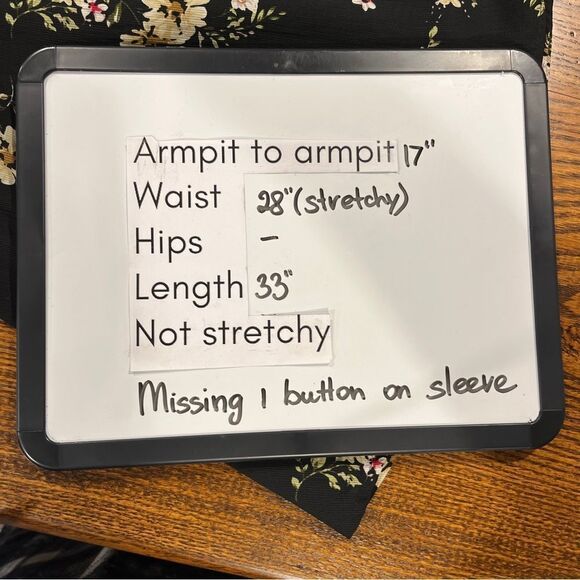 Armpit to armpit 17"
Waist 28" (stretchy)
Hips -
Length 33"
Not stretchy
Missing 1 button on sleeve